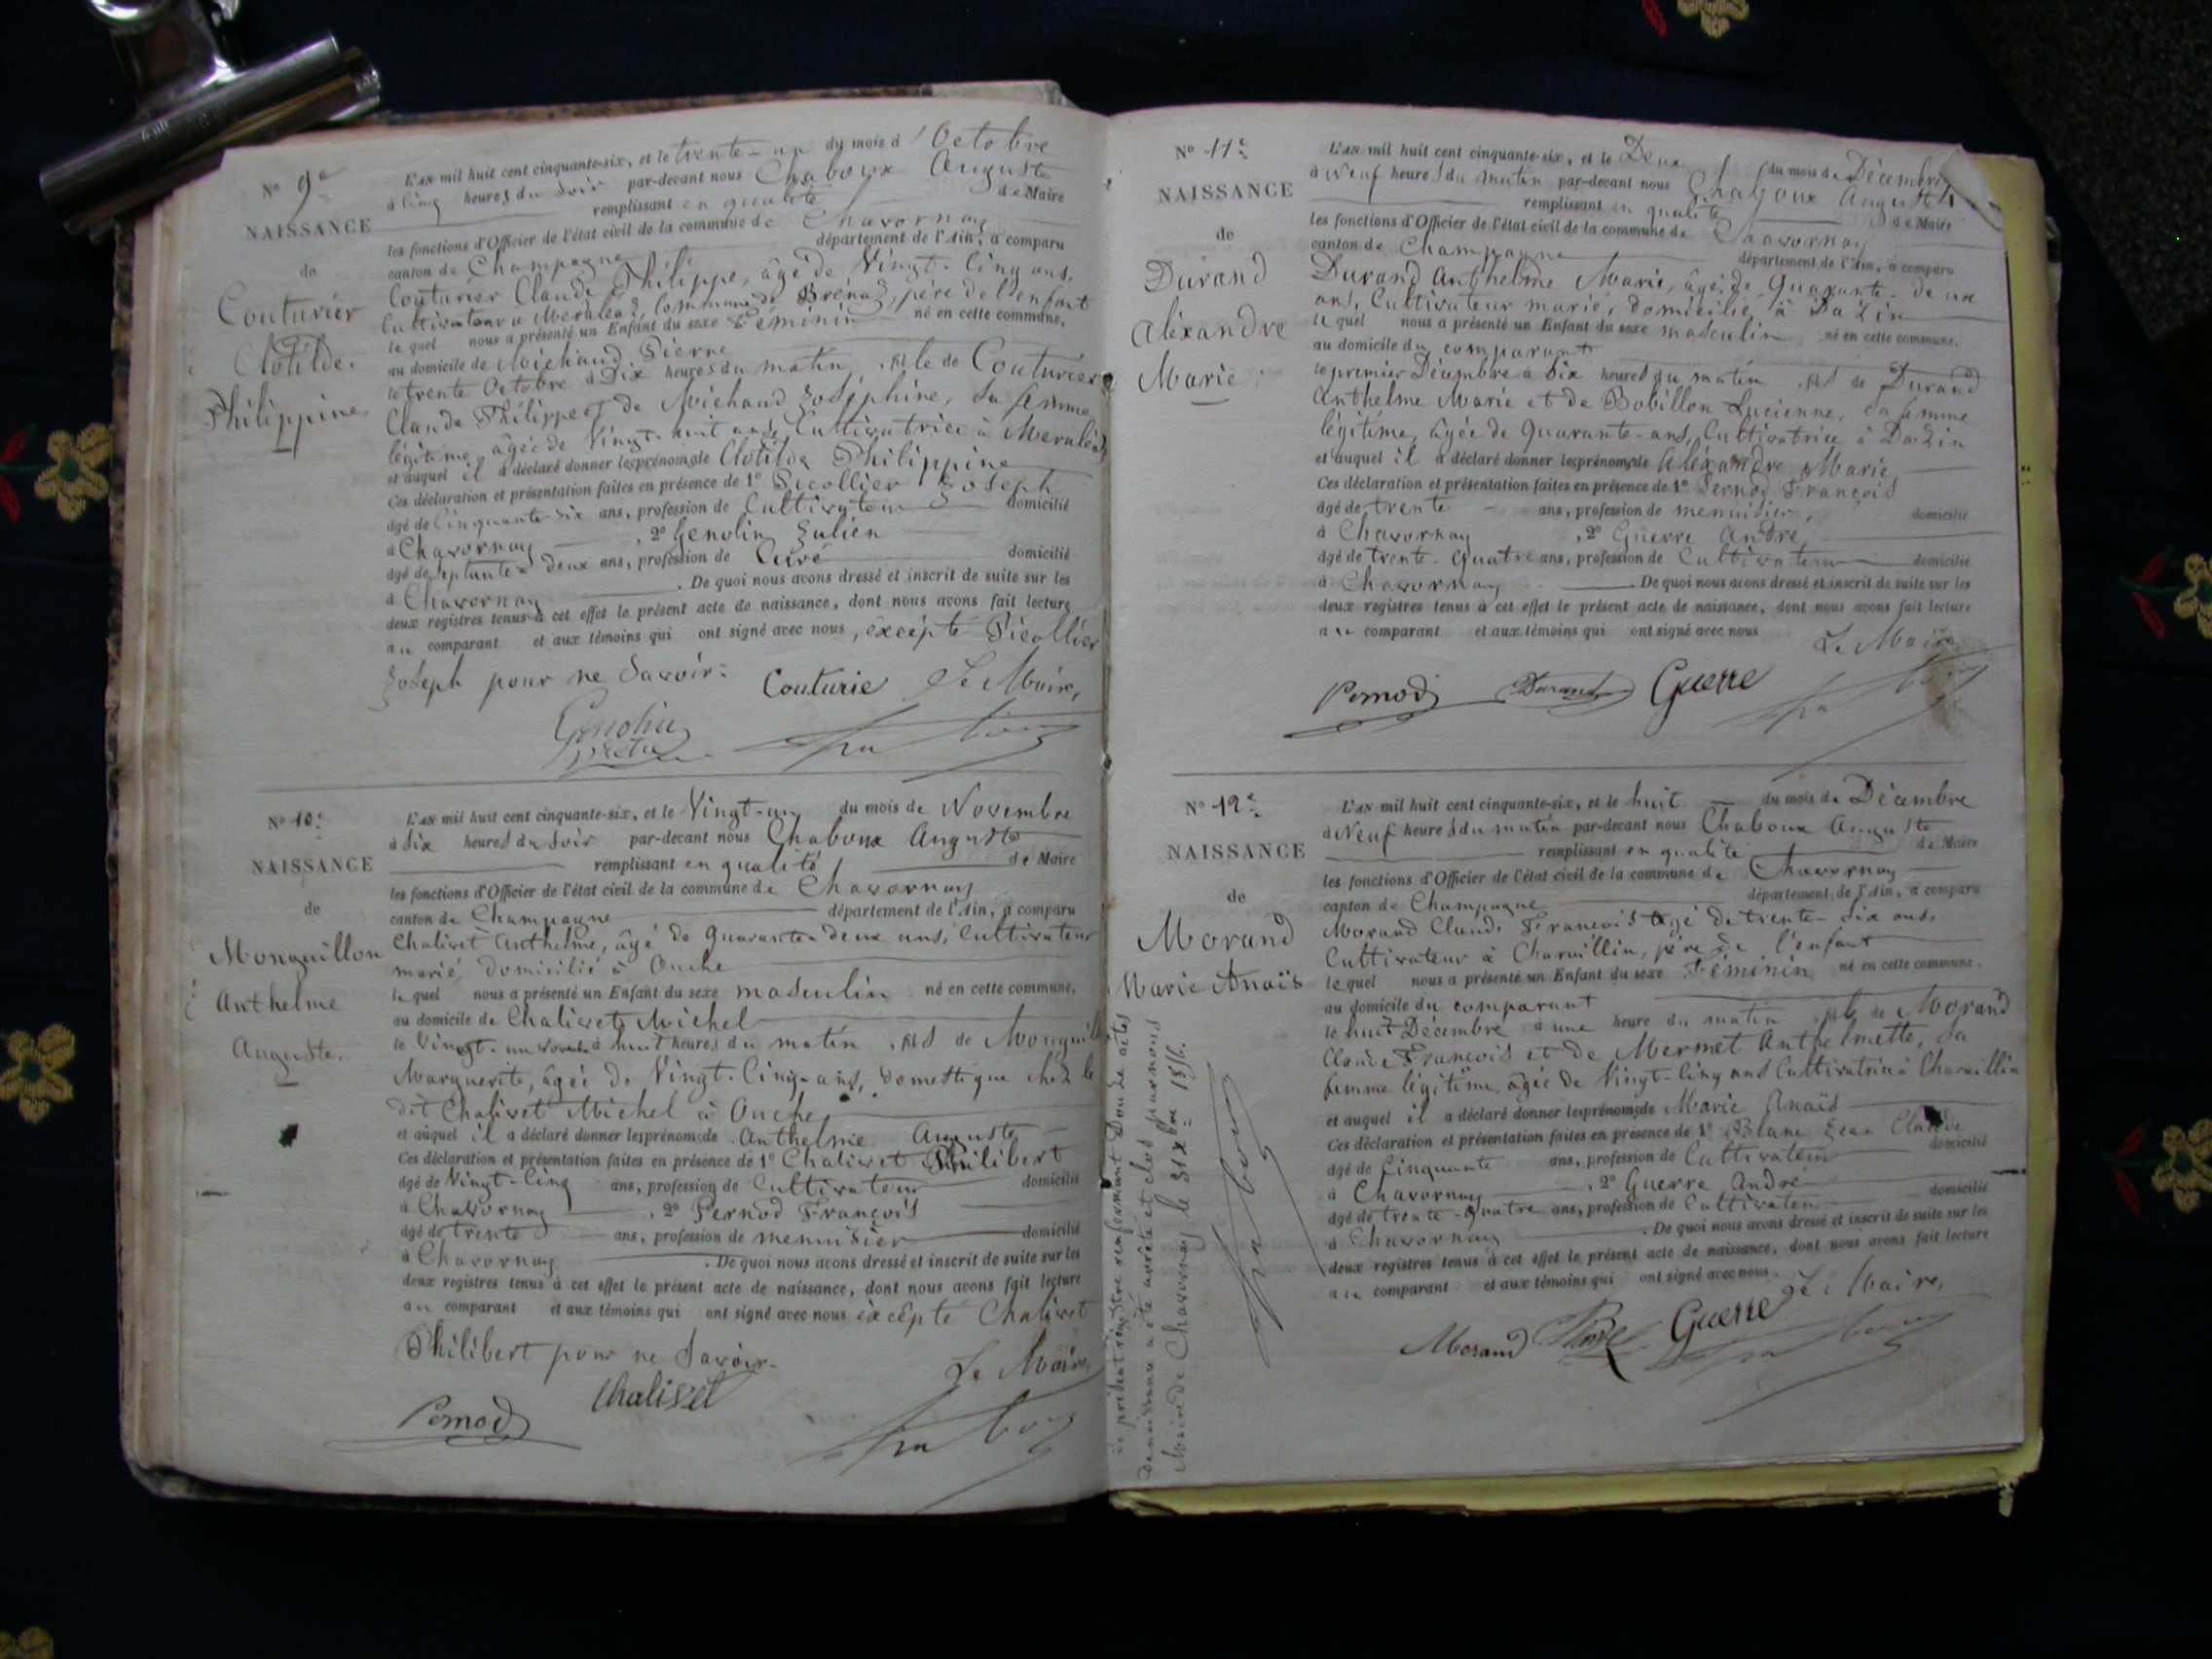 N° 9e
NAISSANCE
de
Couturier
Clotilde
Philippine
L'AN mil huit cent cinquante-six, et le trente-un du mois d'Octobre
à cinq heures du soir par-devant nous Chaboux Auguste
remplissant en qualité de Maire
les fonctions d'Officier de l'état civil de la commune de Chavornay
canton de Champagne département de l'Ain, a comparu
Couturier Claude Philippe, âgé de Vingt-cinq ans,
Cultivateur à Méraléaz, commune de Brénaz, père de l'enfant
lequel nous a présenté un Enfant du sexe Féminin né en cette commune,
au domicile de Michaud Pierre
le trente Octobre à Dix heures du matin, fille de Couturier
Claude Philippe et de Michaud Joséphine, sa femme
légitime, âgée de Vingt-huit ans, Cultivatrice à Méraléaz
et auquel il a déclaré donner les prénoms de Clotilde Philippine
Ces déclaration et présentation faites en présence de 1° Picollier Joseph
âgé de Cinquante-six ans, profession de Cultivateur domicilié
à Chavornay, 2° Genolin Julien
âgé de Septante-deux ans, profession de Curé domicilié
à Chavornay. De quoi nous avons dressé et inscrit de suite sur les
deux registres tenus à cet effet le présent acte de naissance, dont nous avons fait lecture
au comparant et aux témoins qui ont signé avec nous, excepté Picollier
Joseph pour ne Savoir.
Couturie Le Maire,
Genolin
N° 10e
NAISSANCE
de
Monguillon
Anthelme
Auguste.
L'AN mil huit cent cinquante-six, et le Vingt-un du mois de Novembre
à six heures du soir par-devant nous Chaboux Auguste
remplissant en qualité de Maire
les fonctions d'Officier de l'état civil de la commune de Chavornay
canton de Champagne département de l'Ain, a comparu
Chalivet Anthelme, âgé de quarante-deux ans, Cultivateur
marié, domicilié à Ouche
lequel nous a présenté un Enfant du sexe masculin né en cette commune,
au domicile de Chalivet Michel
le Vingt-un Novembre à huit heures du matin, fils de Monguillon
Marguerite, âgée de Vingt-Cinq-ans, Domestique chez le
dit Chalivet Michel à Ouche
et auquel il a déclaré donner les prénoms de Anthelme Auguste
Ces déclaration et présentation faites en présence de 1° Chalivet Philibert
âgé de Vingt-Cinq ans, profession de Cultivateur domicilié
à Chavornay, 2° Pernod François
âgé de trente ans, profession de menuisier domicilié
à Chavornay. De quoi nous avons dressé et inscrit de suite sur les
deux registres tenus à cet effet le présent acte de naissance, dont nous avons fait lecture
au comparant et aux témoins qui ont signé avec nous excepté Chalivet
Philibert pour ne Savoir.
Le Maire,
Pernod Chalivet
N° 11e
NAISSANCE
de
Durand
Aléxandre
Marie
L'AN mil huit cent cinquante-six, et le Deux du mois de Décembre
à Neuf heures du matin par-devant nous Chaboux Auguste
remplissant en qualité de Maire
les fonctions d'Officier de l'état civil de la commune de Chavornay
canton de Champagne département de l'Ain, a comparu
Durand Anthelme Marie, âgé de Quarante-deux
ans, Cultivateur marié, domicilié à Dazin
lequel nous a présenté un Enfant du sexe masculin né en cette commune,
au domicile du comparant
le premier Décembre à Six heures du matin, fils de Durand
Anthelme Marie et de Bobillon Lucienne, sa femme
légitime, âgée de Quarante-ans, Cultivatrice à Dazin
et auquel il a déclaré donner les prénoms de Aléxandre Marie
Ces déclaration et présentation faites en présence de 1° Pernod François
âgé de trente ans, profession de menuisier, domicilié
à Chavornay, 2° Guerre André
âgé de trente-Quatre ans, profession de Cultivateur domicilié
à Chavornay. De quoi nous avons dressé et inscrit de suite sur les
deux registres tenus à cet effet le présent acte de naissance, dont nous avons fait lecture
au comparant et aux témoins qui ont signé avec nous
Le Maire
Pernod Durand Guerre
N° 12e
NAISSANCE
de
Morand
Marie Anaïs
L'AN mil huit cent cinquante-six, et le huit du mois de Décembre
à Neuf heures du matin par-devant nous Chaboux Auguste
remplissant en qualité de Maire
les fonctions d'Officier de l'état civil de la commune de Chavornay
canton de Champagne département de l'Ain, a comparu
Morand Claude François âgé de trente-six ans,
Cultivateur à Charvillin, père de l'enfant
lequel nous a présenté un Enfant du sexe Féminin né en cette commune,
au domicile du comparant
le huit Décembre à une heure du matin, fille de Morand
Claude François et de Mermet Anthelmette, Sa
femme légitime, âgée de Vingt-Cinq ans Cultivatrice à Charvillin
et auquel il a déclaré donner les prénoms de Marie Anaïs
Ces déclaration et présentation faites en présence de 1° Blanc Jean Claude
âgé de Cinquante ans, profession de Cultivateur domicilié
à Chavornay, 2° Guerre André
âgé de trente-Quatre ans, profession de Cultivateur domicilié
à Chavornay. De quoi nous avons dressé et inscrit de suite sur les
deux registres tenus à cet effet le présent acte de naissance, dont nous avons fait lecture
au comparant et aux témoins qui ont signé avec nous.
Le Maire,
Morand Guerre
Le présent régistre renfermant Douze actes
de naissance a été arrêté et clos par nous
Maire de Chavornay le 31 Xbre 1856.